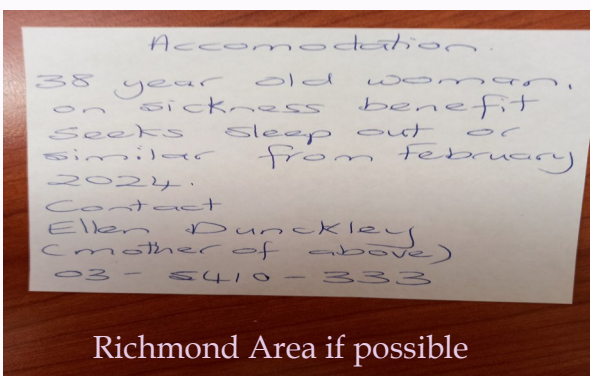 Accomodation.
38 year old woman,
on sickness benefit
seeks sleep out or
similar from February
2024.
Contact
Ellen Dunckley
(mother of above)
03 - 5410 - 333
Richmond Area if possible